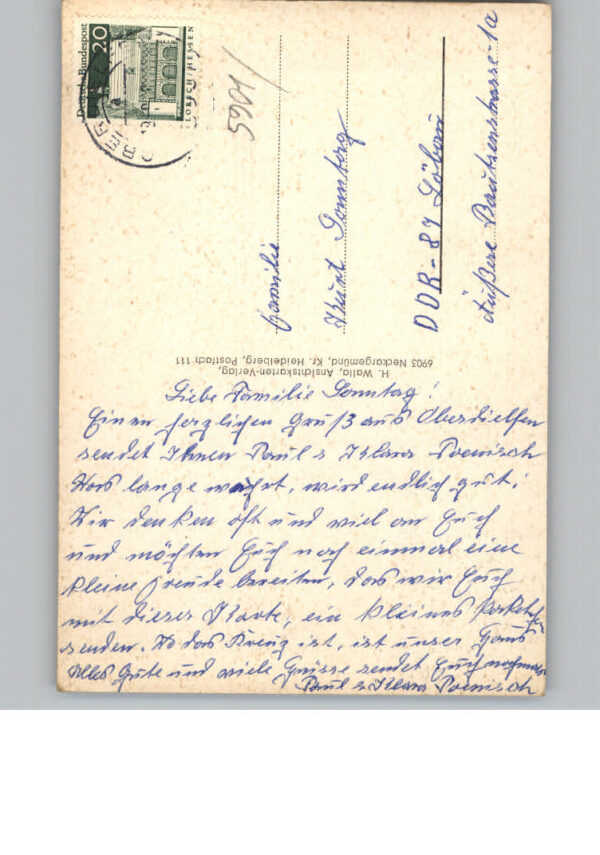 Deutsche Bundespost
20
LORSCH/HESSEN
5901/
Familie
Kurt Sonntag
DDR-87 Löbau
Äußere Bautzenstrasse 1a
H. Walla, Ansichtskarten-Verlag,
6903 Neckargemünd, Kr. Heidelberg, Postfach 111
Liebe Familie Sonntag!
Einen herzlichen Gruß aus Oberdielfen
sendet Ihnen Paul & Klara Poenisch
Was lange währt, wird endlich gut!
Wir denken oft und viel an Euch
und möchten Euch noch einmal eine
kleine Freude bereiten, das wir Euch
mit dieser Karte, ein kleines Paket
senden. Wo das Kreuz ist, ist unser Haus
Alles Gute und viele Grüsse sendet Euch nochmals
Paul & Klara Poenisch